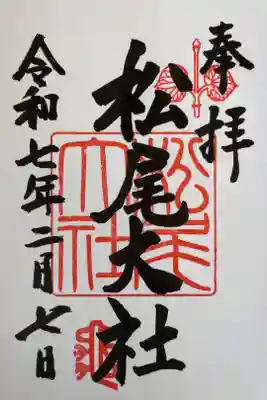 奉拝
松尾大社
令和七年二月七日
松尾大社